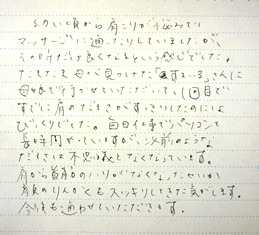 幼い頃から肩こりが悩みで
マッサージに通ったりしていましたが、
その時だけ良くなるという感じでした。
たまたま母が見つけた さんに
母娘で行かせていただいて、1回目で
すでに肩のだるさがすっきりしたのには
びっくりでした。毎日仕事でパソコンを
長時間やっていますが、以前のような
だるさは不思議となくなっています。
肩から首筋のハリがなくなったせいか
顔のりんかくもスッキリしてきた気がします。
今後も通わせていただきます。